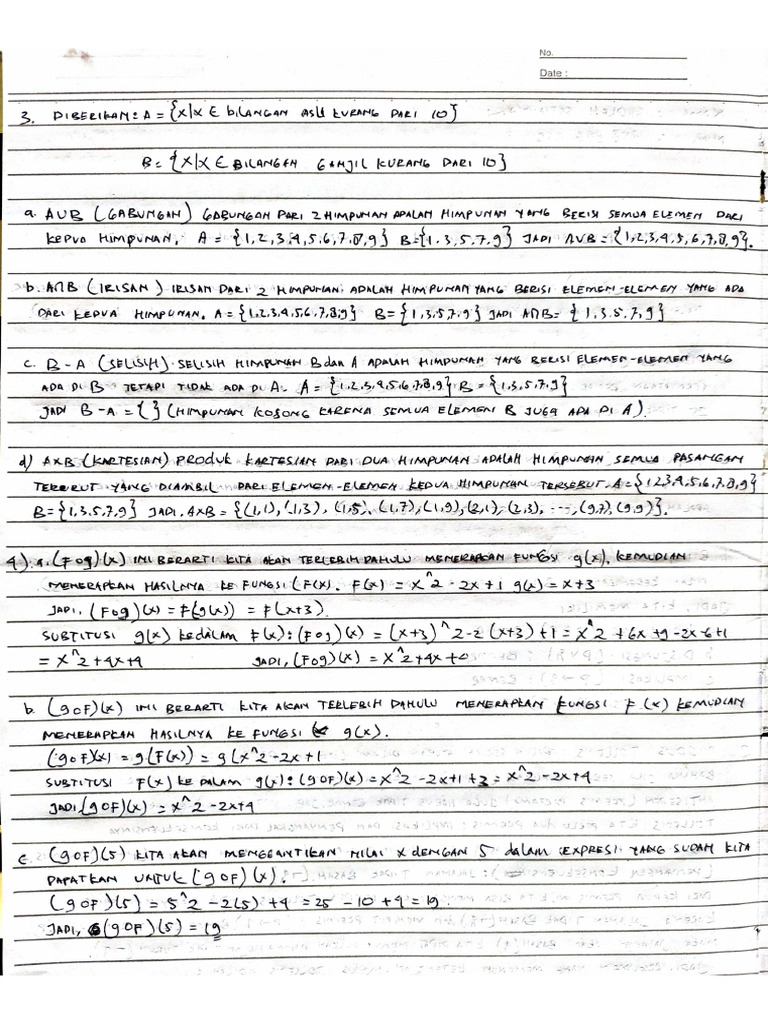 No.
Date :
3. DIBERIKAN: A = {X|X ∈ BILANGAN ASLI KURANG DARI 10}
B = {X|X ∈ BILANGAN GANJIL KURANG DARI 10}
a. AUB (GABUNGAN) GABUNGAN DARI 2 HIMPUNAN ADALAH HIMPUNAN YANG BERISI SEMUA ELEMEN DARI
KEDUA HIMPUNAN. A = {1,2,3,4,5,6,7,8,9} B={1.3,5,7.9} JADI AUB = {1,2,3,4,5,6,7,8,9}.
b. A∩B (IRISAN) IRISAN DARI 2 HIMPUNAN ADALAH HIMPUNAN YANG BERISI ELEMEN-ELEMEN YANG ADA
DARI KEDUA HIMPUNAN. A = {1,2,3,4,5,6,7,8,9} B = {1,3,5,7,9} JADI A∩B = {1,3,5,7,9}
c. B - A (SELISIH) SELISIH HIMPUNAN B dan A ADALAH HIMPUNAN YANG BERISI ELEMEN-ELEMEN YANG
ADA DI B TETAPI TIDAK ADA DI A. A = {1,2,3,4,5,6,7,8,9} B = {1,3,5,7,9}
JADI B - A = { } (HIMPUNAN KOSONG KARENA SEMUA ELEMEN B JUGA ADA DI A).
d) AXB (KARTESIAN) PRODUK KARTESIAN DARI DUA HIMPUNAN ADALAH HIMPUNAN SEMUA PASANGAN
TERURUT YANG DIAMBIL DARI ELEMEN-ELEMEN KEDUA HIMPUNAN TERSEBUT. A={1,2,3,4,5,6,7,8,9}
B = {1,3,5,7,9} JADI. AXB = {(1,1),(1,3), (1,5), (1,7),(1,9),(2,1),(2,3), ..., (9,7),(9,9)}.
4). a. (FOg)(x) INI BERARTI KITA AKAN TERLEBIH DAHULU MENERAPKAN FUNGSI g(x), KEMUDIAN
MENERAPKAN HASILNYA KE FUNGSI (F(x). F(x) = x^2 - 2x+1 g(x) = x+3
JADI, (FOg)(x) = F(g(x)) = F(x+3).
SUBTITUSI g(x) KEDALAM F(x): (FOg)(x) = (x+3)^2-2(x+3)+1 = x^2 + 6x +9 -2x-6+1
= x^2+4x+4 JADI, (FOg)(x) = x^2 +4x +0
b. (gOF)(x) INI BERARTI KITA AKAN TERLEBIH DAHULU MENERAPKAN FUNGSI F(x) KEMUDIAN
MENERAPKAN HASILNYA KE FUNGSI g(x).
(gOF)(x) = g(F(x)) = g(x^2 -2x+1
SUBTITUSI F(x) KE DALAM g(x): (gOF)(x) = x^2 - 2x+1 +3 = x^2 -2x+4
JADI,(gOF)(x) = x^2 -2x+4
c. (gOF)(5) KITA AKAN MENGGANTIKAN NILAI x DENGAN 5 dalam EXPRESI YANG SUDAH KITA
DAPATKAN UNTUK (gOF)(x).
(gOF)(5) = 5^2 - 2(5) + 4 = 25 - 10 + 4 = 19.
JADI, (gOF)(5) = 19